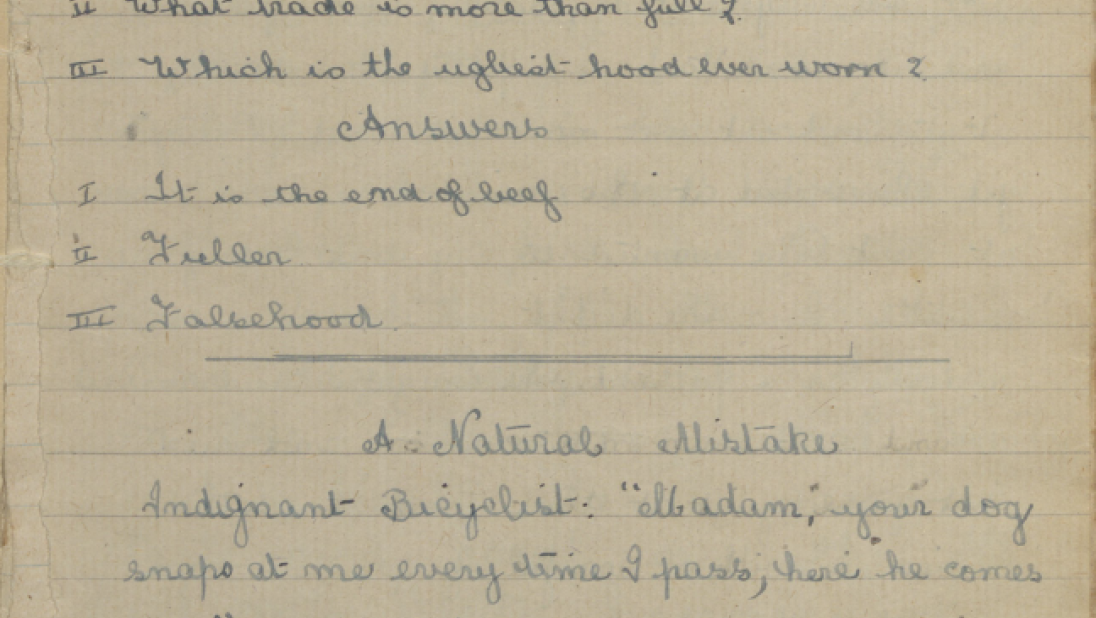 II What trade is more than full ?
III Which is the ugliest hood ever worn ?
Answers
I It is the end of beef
II Fuller
III Falsehood.
A Natural Mistake
Indignant Bicyclist: "Madam, your dog
snaps at me every time I pass, here he comes